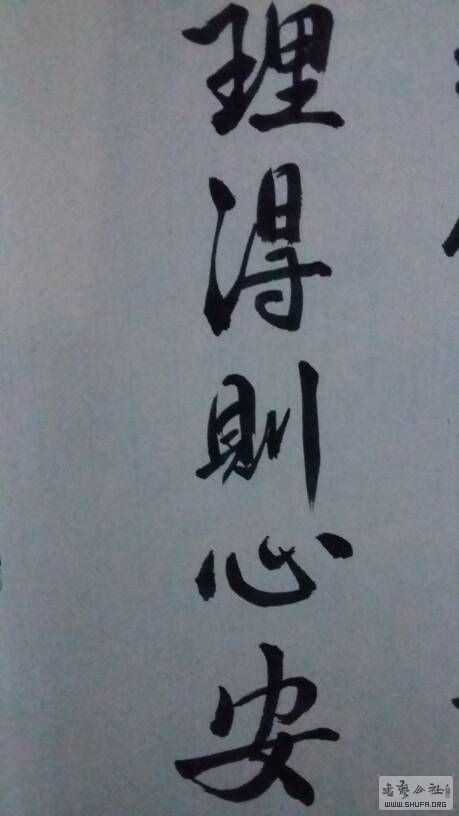 理得則心安
WWW.SHUFA.ORG